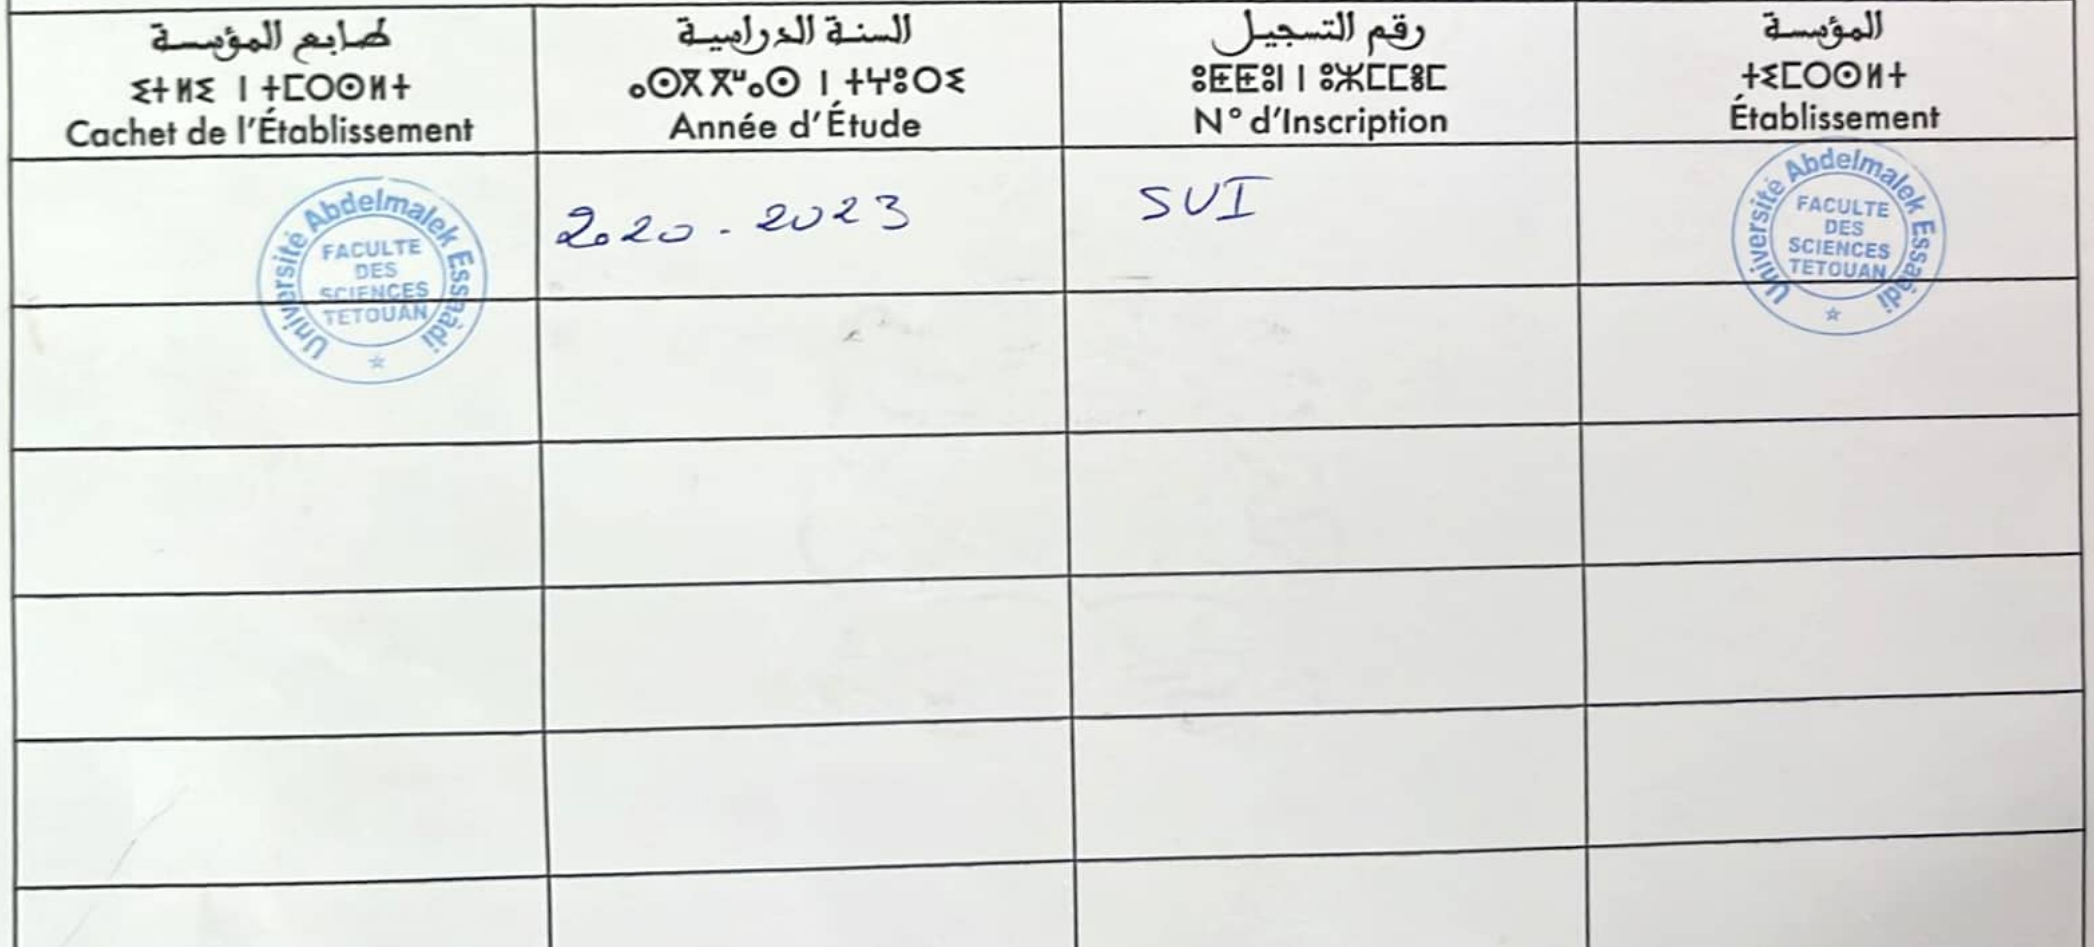 طابع المؤسسة
ⵉⵜⵍⵉ ⵏ ⵜⵎⵔⵙⵍⵜ
Cachet de l'Établissement
السنة الدراسية
ⴰⵙⴳⴳⵯⴰⵙ ⵏ ⵜⵖⵓⵔⵉ
Année d'Étude
رقم التسجيل
ⵓⵟⵟⵓⵏ ⵏ ⵓⵣⵎⵎⴻⵎ
N° d'Inscription
المؤسسة
ⵜⵉⵎⵔⵙⵍⵜ
Établissement
Université Abdelmalek Essaâdi
FACULTE
DES
SCIENCES
TETOUAN
2020 - 2023
SVI
Université Abdelmalek Essaâdi
FACULTE
DES
SCIENCES
TETOUAN